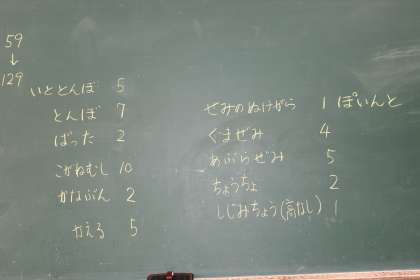 59
↓
129
いととんぼ 5
とんぼ 7
ばった 2
こがねむし 10
かなぶん 2
かえる 5
せみのぬけがら 1 ぽいんと
くまぜみ 4
あぶらぜみ 5
ちょうちょ 2
しじみちょう(高なし) 1